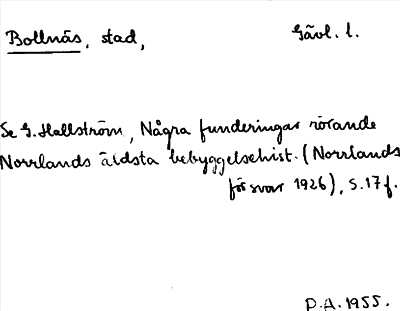 Bollnäs, stad, Gävl. l.
Se G. Hallström, Några funderingar rörande
Norrlands äldsta bebyggelsehist. (Norrlands
försvar 1926), S. 17 f.
P.A. 1955.